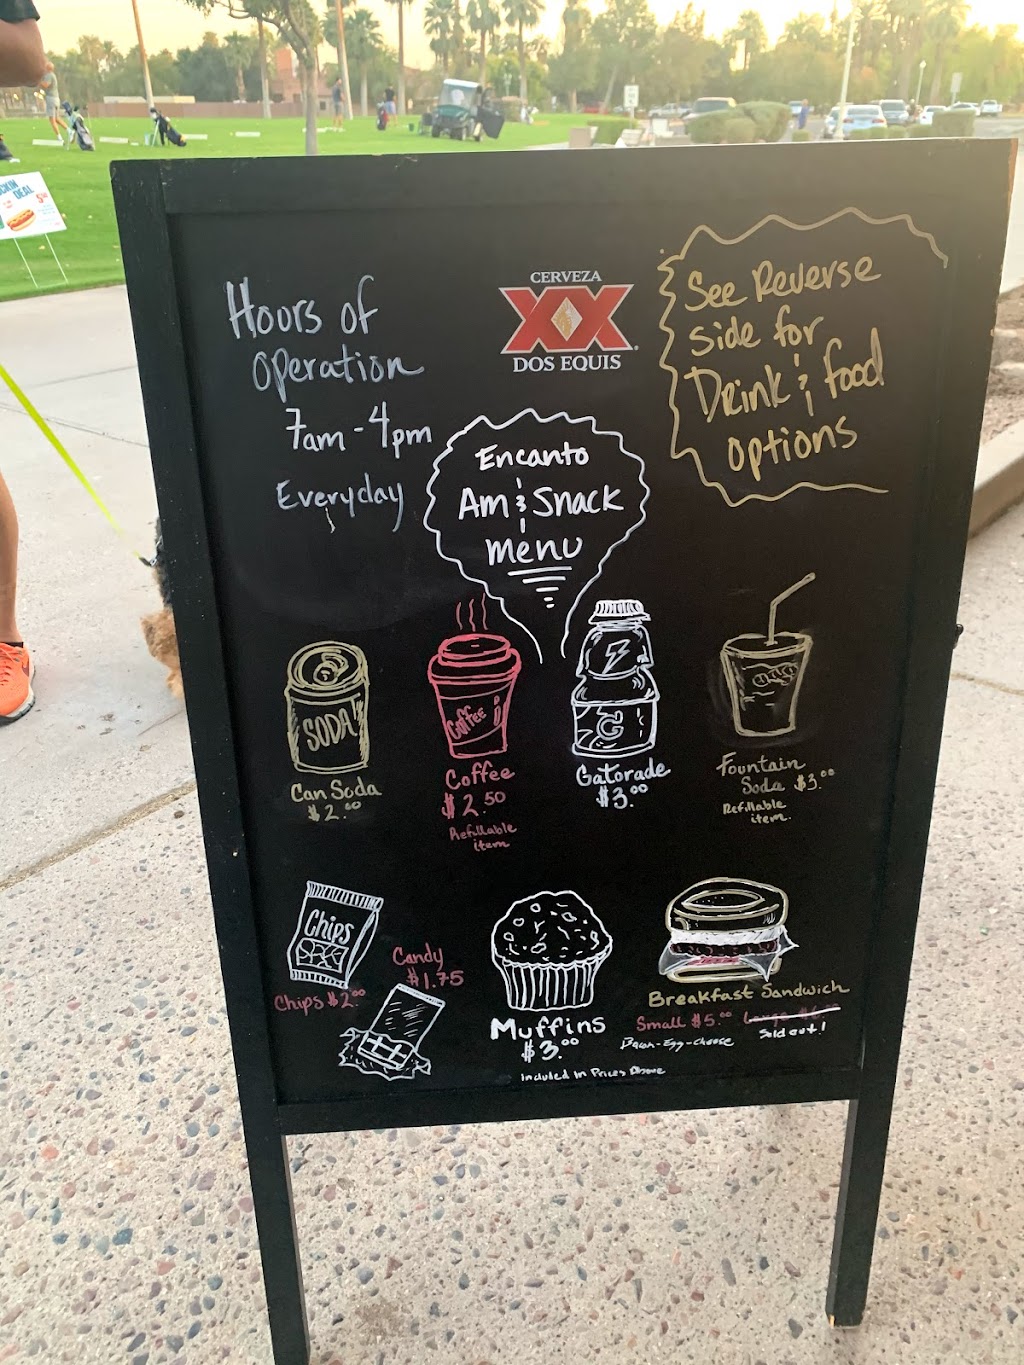 Hours of
Operation
7am - 4pm
Everyday
CERVEZA
XX
DOS EQUIS
See Reverse
side for
Drink & food
options
Encanto
Am & Snack
menu
SODA!
Can Soda
$2.00
Coffee
Coffee
$2.50
Refillable
item
G
Gatorade
$3.00
Fountain
Soda $3.00
Refillable
item.
Chips
Chips $2.00
Candy
$1.75
Muffins
$3.00
Breakfast Sandwich
Small $5.00
Sold out!
Bacon-Egg-Cheese
Included in Prices Above
DEAL